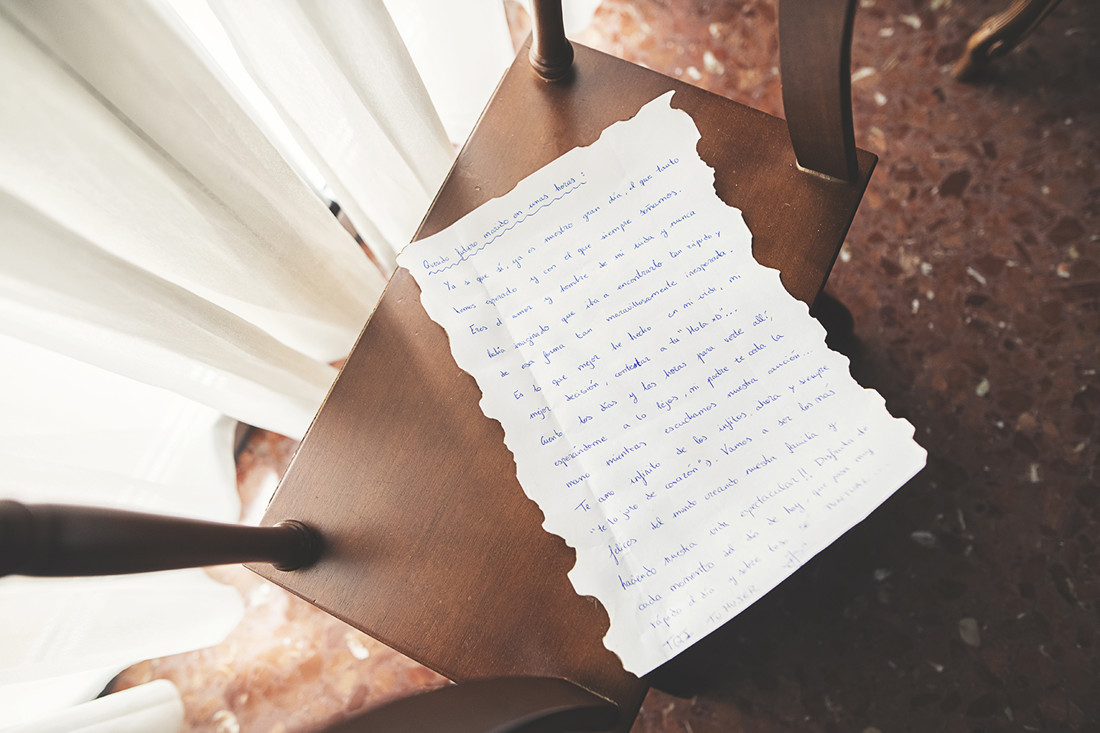 Querido futuro marido en unas horas:
Ya se que sí, ya es nuestro gran día, el que tanto
hemos esperado y con el que siempre soñamos.
Eres el amor y hombre de mi vida y nunca
había imaginado que iba a encontrarlo tan rápido y
de esa forma tan maravillosamente inesperada
Es lo que mejor he hecho en mi vida, mi
mejor decisión, contestar a tu "Hola =D"...
Cuento los días y las horas para verte allí,
esperándome a lo lejos, mi padre
mano mientras escuchamos nuestra canción...
Te amo infinito de los infitos, ahora y siempre
"te lo juro de corazón"). Vamos a ser los más
felices del mundo creando nuestra familia y
haciendo nuestra vida espectacular!! Disfruta de
cada momento del día de hoy, que pasa muy
rápido el día y sobre todo
TQ TU MUJER